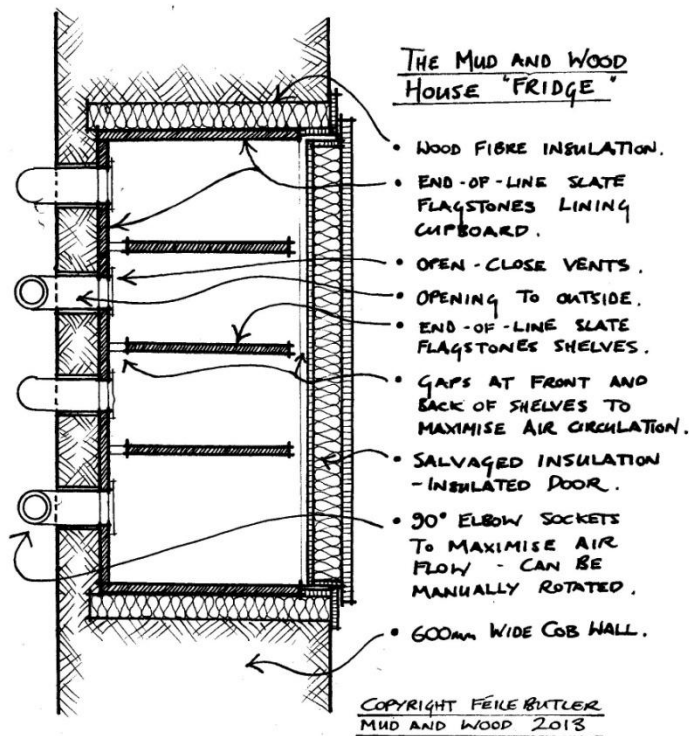 THE MUD AND WOOD
HOUSE "FRIDGE"
• WOOD FIBRE INSULATION.
• END-OF-LINE SLATE
FLAGSTONES LINING
CUPBOARD.
• OPEN-CLOSE VENTS.
• OPENING TO OUTSIDE.
• END-OF-LINE SLATE
FLAGSTONES SHELVES.
• GAPS AT FRONT AND
BACK OF SHELVES TO
MAXIMISE AIR CIRCULATION.
• SALVAGED INSULATION
-INSULATED DOOR.
• 90° ELBOW SOCKETS
TO MAXIMISE AIR
FLOW - CAN BE
MANUALLY ROTATED.
• 600mm WIDE COB WALL.
COPYRIGHT FÉILE BUTLER
MUD AND WOOD 2013